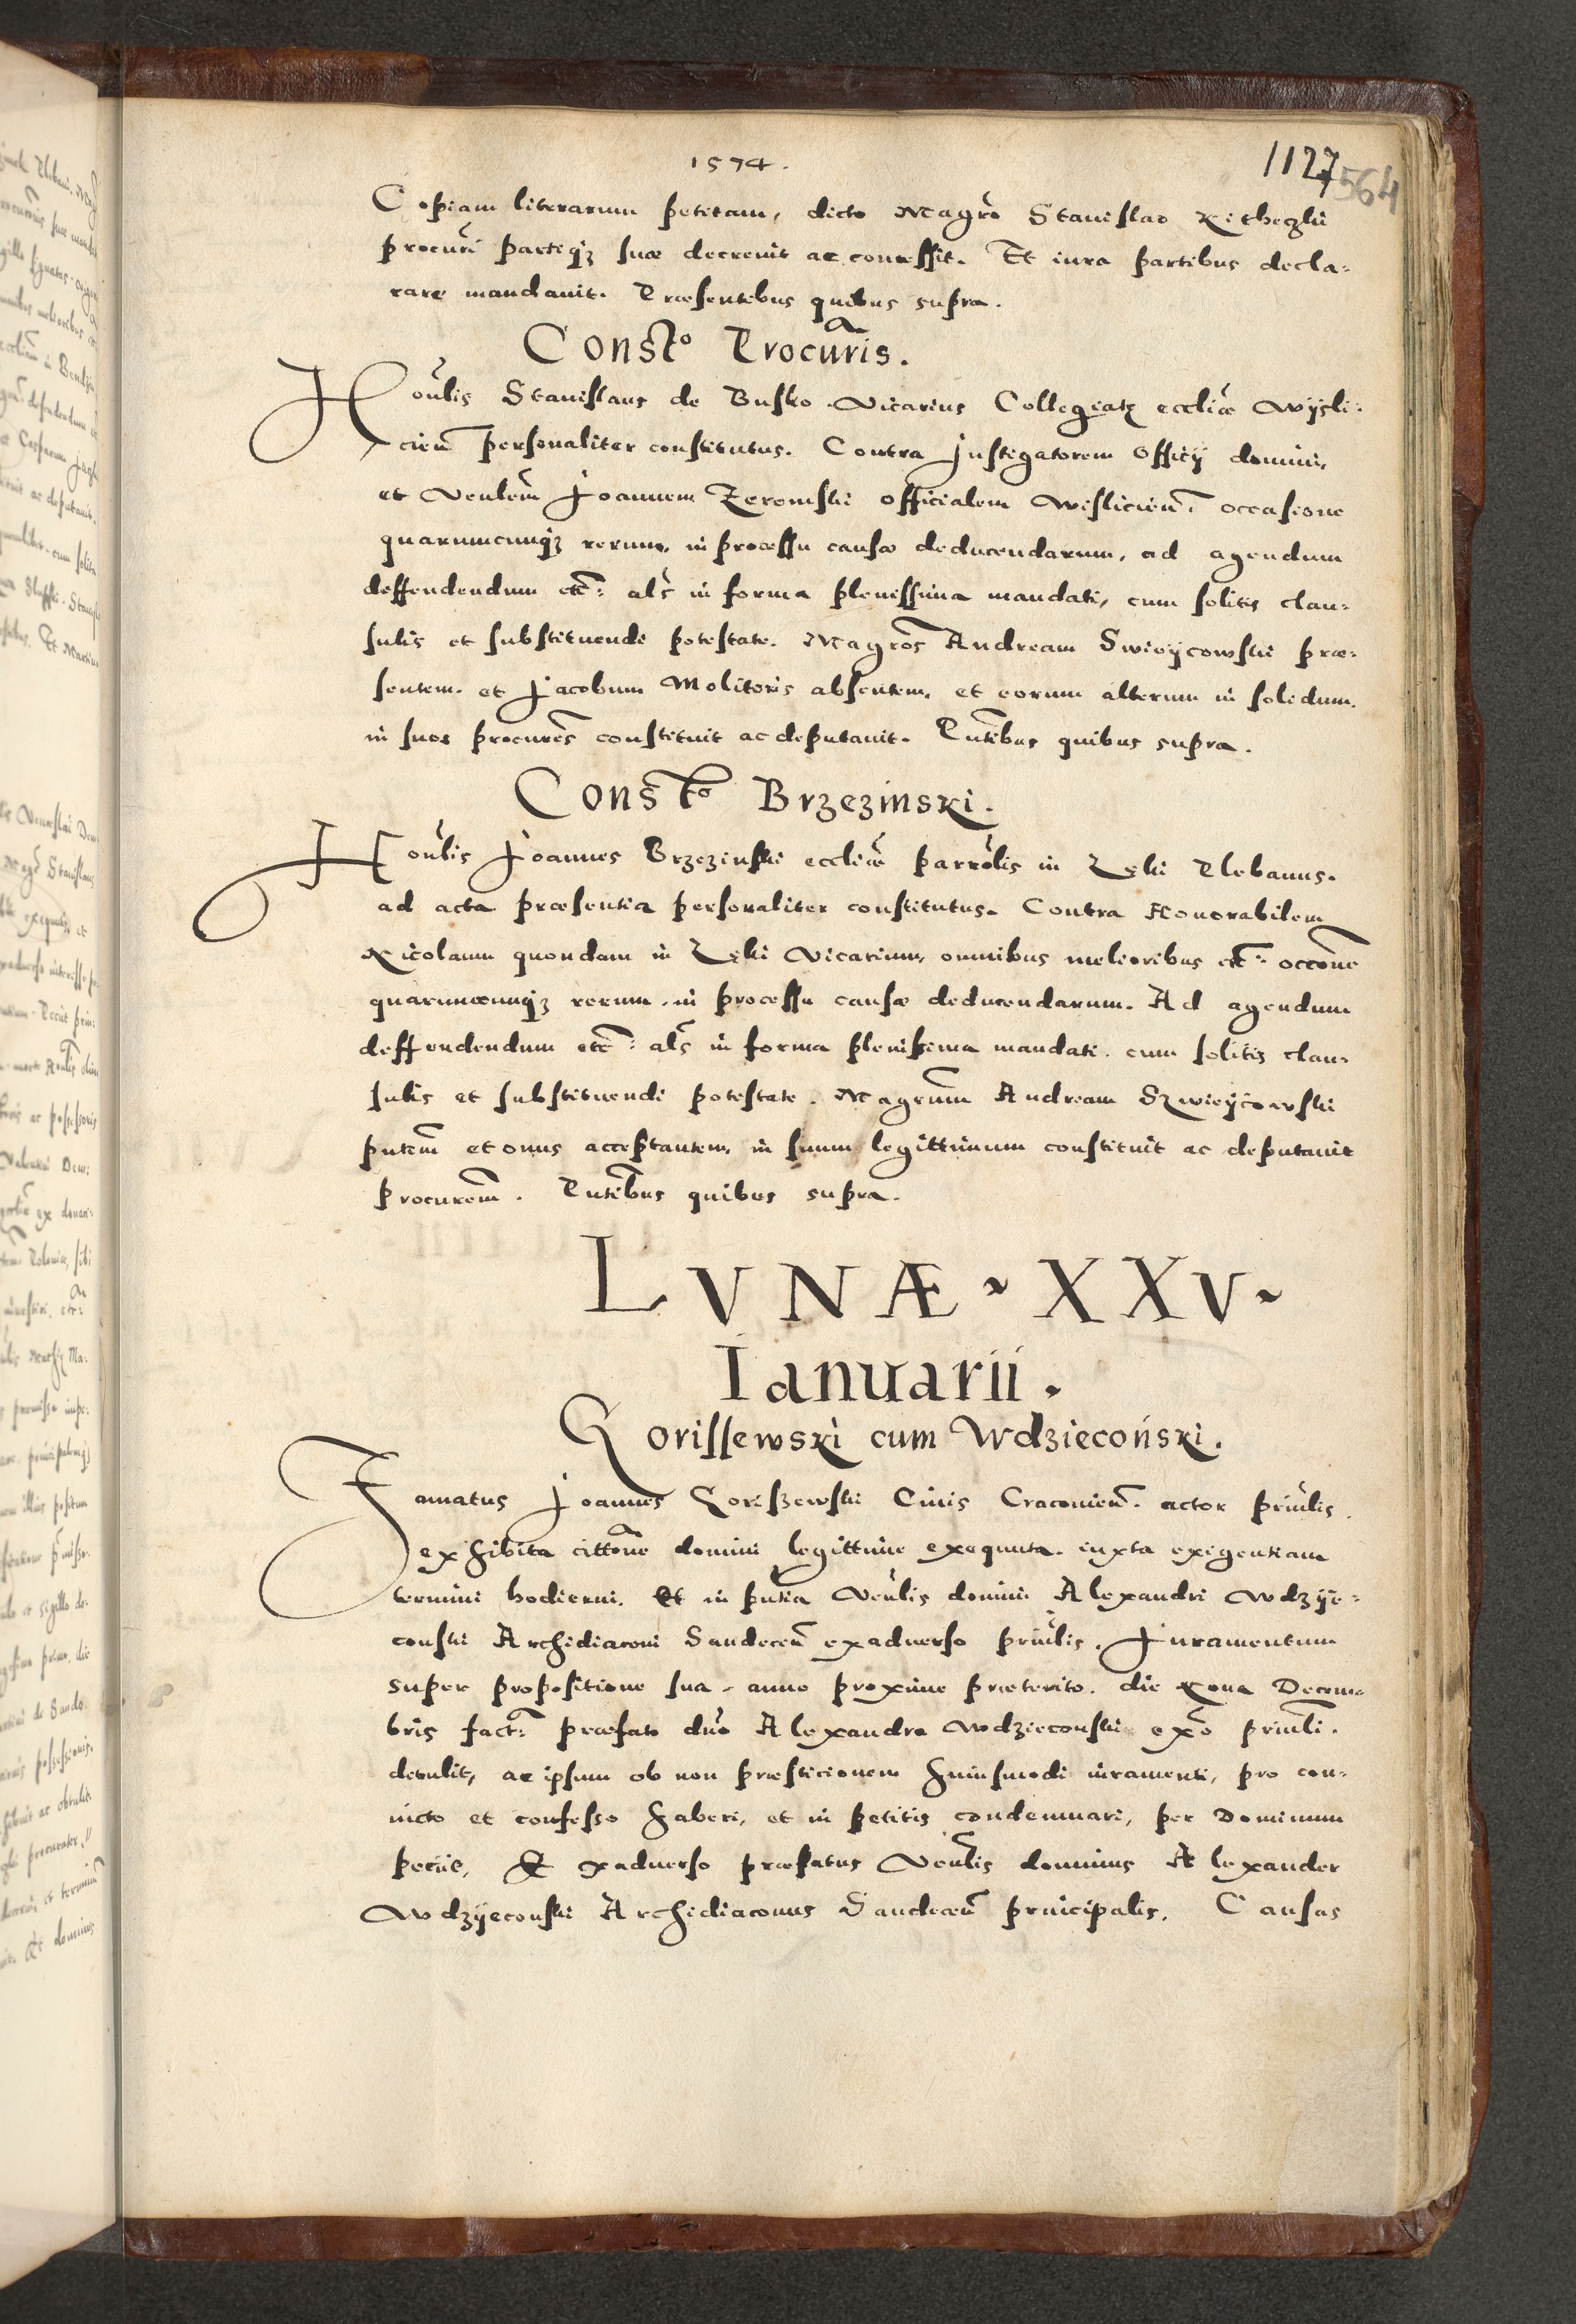 1574.
1127
564
Copiam literarum petitam, dicto Magrō Stanislao
procuri partiqz suæ decrevit ac concessit. Et iura partibus decla:
rare mandavit. Præsentibus quibus supra.
Constō Procūris.
Honlis Stanislaus de Busko Vicarius Collegiatæ eccliæ Wysli:
cień personaliter constitutus. Contra Instigatorem Officÿ domini,
et Venlem Joannem Zeromski Officialem Wislicień. occasione
quarumcunqz rerum, in processu causæ deducendarum, ad agendum
deffendendum etc: als in forma plenissima mandati, cum solitis clau:
sulis et substituendi potestate. Magros Andream Swieÿcowski præ:
sentem. et Jacobum Molitoris absentem, et eorum alterum in solidum.
in suos procures constituit ac deputavit. Pntibus quibus supra.
Constō Brzezinski.
Honlis Joannes Brzezinski eccliæ parrolis in Lęki Plebanus.
ad acta præsentia personaliter constitutus. Contra Honorabilem
Nicolaum quondam in Lęki Vicarium, omnibus melioribus etc: occone
quarumcunqz rerum, in processu causæ deducendarum. Ad agendum
deffendendum etc: als in forma plenissima mandati. cum solitis clau:
sulis et substituendi potestate. Magrum Andream Szwieÿcowski
pntem et onus acceptantem, in suum legittimum constituit ac deputavit
procurem. Pntibus quibus supra.
LVNÆ. XXV.
Ianuarii.
Gorissewski cum Wdziecoński.
Famatus Joannes Goriszewski Civis Cracovień. actor prinlis.
exhibita cittone domini legittime exequuta. iuxta exigentiam
termini hodierni. Et in pntia Venlis domini Alexandri Wdzÿe:
conski Archidiaconi Sandeceń exadverso prinlis. Juramentum
super propositione sua, anno proxime præterito. die Nona Decem:
bris fact: præfato dno Alexandro Wdzieconski exo prinli.
detulit, ac ipsum ob non præsticionem huiusmodi iuramenti, pro con:
victo et confesso haberi, et in petitis condemnari, per Dominum
peciit, Et exadverso præfatus Venlis dominus Alexander
Wdzÿeconski Archidiaconus Sandeceń principalis. Causas